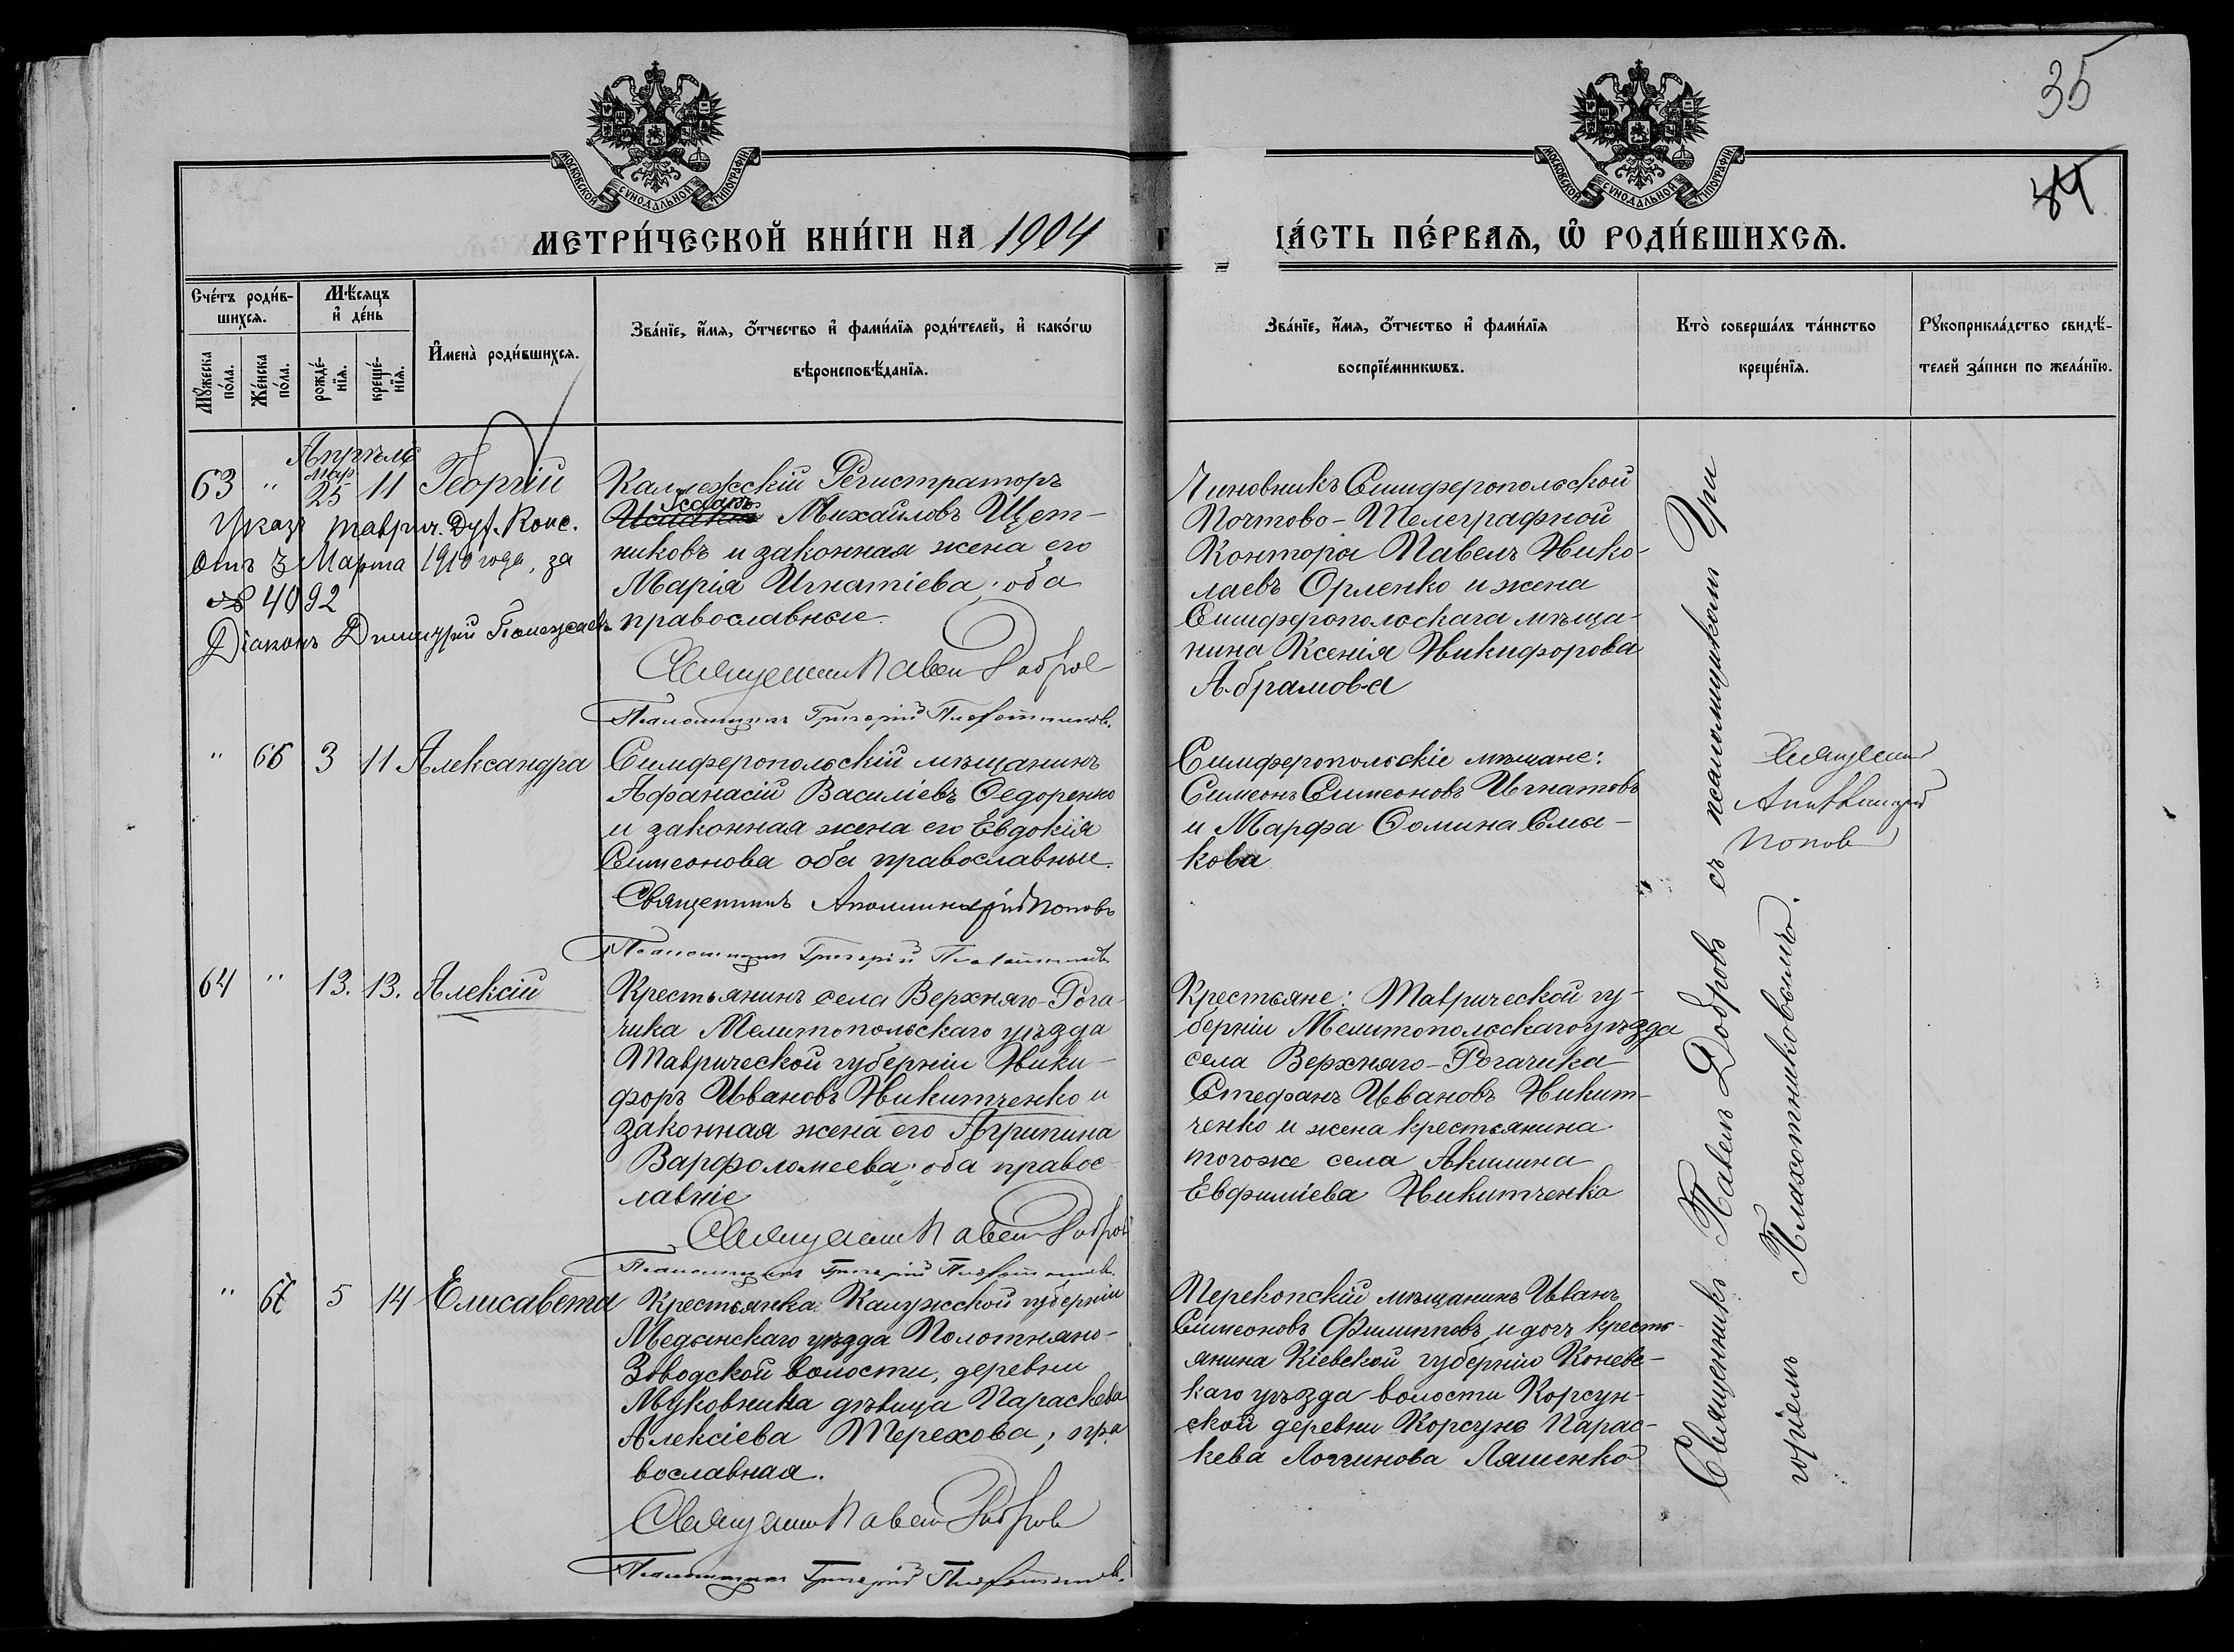 35
84
МОСКОВСКОЙ СѴНОДАЛЬНОЙ ТИПОГРАФІИ
МОСКОВСКОЙ СѴНОДАЛЬНОЙ ТИПОГРАФІИ
МЕТРИ́ЧЕСКОЙ КНИ́ГИ НА 1904 Г
ЧА́СТЬ ПЕ́РВАѦ, Ѡ҆ РОДИ́ВШИХСѦ.
Сче́тъ роди́в-
шихсѧ.
Мꙋ́жеска
по́ла.
Же́нска
по́ла.
Мѣ́сѧцъ
и҆ де́нь
рожде́-
нїѧ.
креще́-
нїѧ.
И҆мена̀ роди́вшихсѧ.
Зва́нїе, и҆́мѧ, ѻ҆́тчество и҆ фами́лїѧ роди́телей, и҆ како́гѡ
вѣроисповѣ́данїѧ.
Зва́нїе, и҆́мѧ, ѻ҆́тчество и҆ фами́лїѧ
воспрїе́мникѡвъ.
Кто̀ соверша́лъ та́инство
креще́нїѧ.
Рꙋкоприкла́дство свидѣ́-
телей за́писи по жела́нїю.
Апрѣль
63 " Мар. 25 11 Георгій
Указъ Таврич. Дух. Конс.
отъ 3 Марта 1910 года, за
№ 4092
Діаконъ Димитрій
Каллежскій Регистраторъ
Исаакъ
Михайловъ Щет-
никовъ и законная жена его
Марія Игнатіева, оба
православные.
Священникъ Павелъ Добровъ
Псаломщикъ Григорій Плахотниковъ.
Чиновникъ Симферопольской
Почтово-Телеграфной
Конторы Павелъ Нико-
лаевъ Орленко и жена
Симферопольскага мѣща-
нина Ксенія Никифорова
Абрамова
" 66 3 11 Александра
Симферопольскій мѣщанинъ
Афанасій Василіевъ Ѳедоренко
и законная жена его Евдокія
Симеонова оба православные.
Священникъ Аполлинарій Поповъ
Псаломщикъ Григорій Плахотниковъ
Симферопольскіе мѣщане:
Симеонъ Симеоновъ Игнатовъ
и Марфа Ѳомина Сма-
кова
Священникъ
Аполлинарій
Поповъ
64 " 13. 13. Алексій
Крестьянинъ села Верхняго-Рога-
чика Мелитопольскаго уѣзда
Таврической губерніи Ники-
форъ Ивановъ Никитченко и
законная жена его Агрипина
Варфоломеева; оба правос-
лавніе
Священникъ Павелъ Добровъ
Псаломщикъ Григорій Плахотниковъ.
Крестьяне: Таврической гу-
берніи Мелитопольскаго уѣзда
села Верхняго-Рогачика
Стефанъ Ивановъ Никит-
ченко и жена крестьянина
тогоже села Акилина
Евфиміева Никитченко
" 67 5 14 Елисавета
Крестьянка Калужской губерніи
Медынскаго уѣзда Полотняно-
Заводской волости, деревни
Муковнина дѣвица Параскева
Алексіева Терехова, пра
вославная.
Священникъ Павелъ Добровъ
Псаломщикъ Григорій Плахотниковъ.
Перекопскій мѣщанинъ Иванъ
Симеоновъ Филипповъ и дочь кресть-
янина Кіевской губерніи Коневс-
каго уѣзда волости Корсун-
ской деревни Корсунь Парас-
кева Логгинова Ляшенко
Священникъ Павелъ Добровъ съ псаломщикомъ Гри
горіемъ Плахотниковымъ.